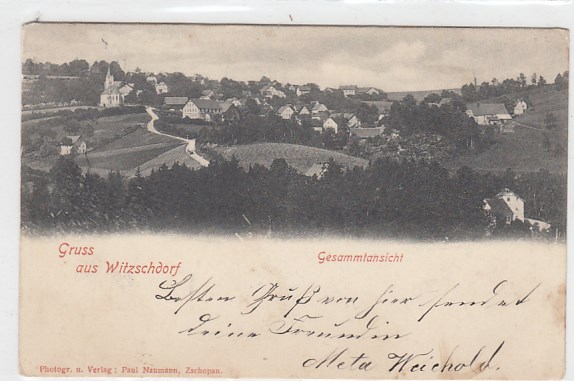 Gruss
aus Witzschdorf
Gesammtansicht
Besten Gruß von hier sendet
deine Freundin
Meta Weichold.
Photogr. u. Verlag : Paul Naumann, Zschopau.